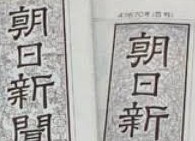 朝日新聞
朝日新